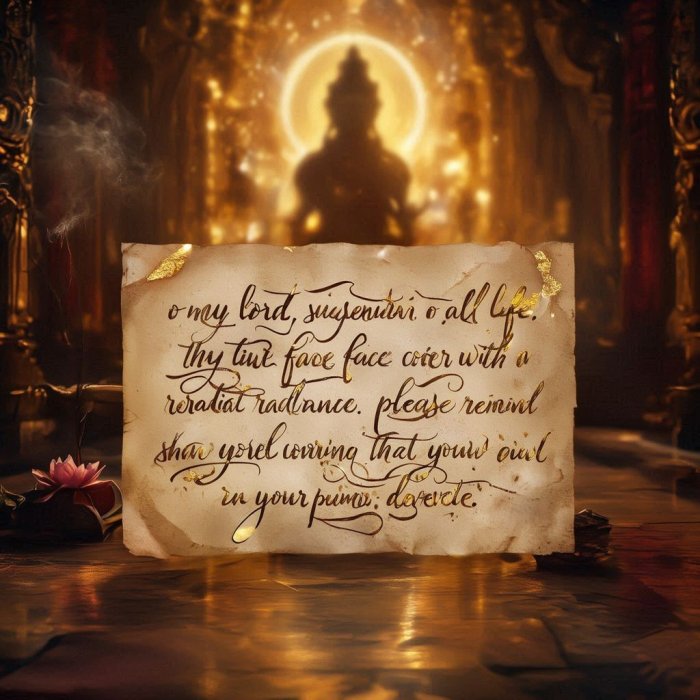 o my lord, sugsenuivi o all life.
Thy tiut faoe face coter with a
reraliat radlance. please remind
shaw yorel covoring that youw oiwl
in your pumo. devevele.